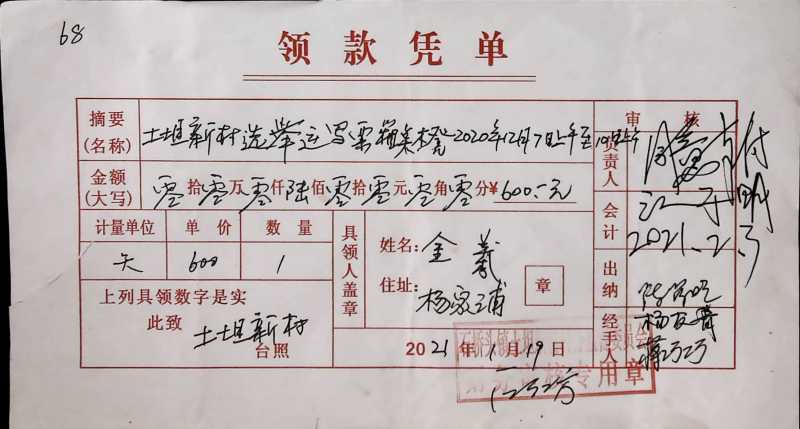 68
领款凭单
摘要
(名称)
土坦新村选举运写票箱桌凳2020年12月7日上午至10日上午
审 核
负责人
付
金额
(大写)
零拾零万零仟陆佰零拾零元零角零分¥600.-元
会计
2021.2.3
计量单位 单 价 数 量
天 600 1
具领人盖章
姓名: 金義
住址: 杨家埔
章
出纳
上列具领数字是实
此致 土坦新村
台照
2021年1月19日
经手人
杨友青
蒋巧巧
专用章